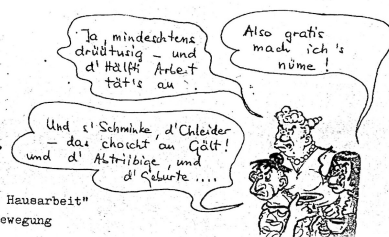 Ja, mindeschtens
drüütusig – und
d'Hälfti Arbet
tät's au
Also gratis
mach ich's
nüme!
Und s'Schminke, d'Chleider
– das choscht au Gält!
und d'Abtriibige, und
d'Geburte ....
Hausarbeit"
ewegung